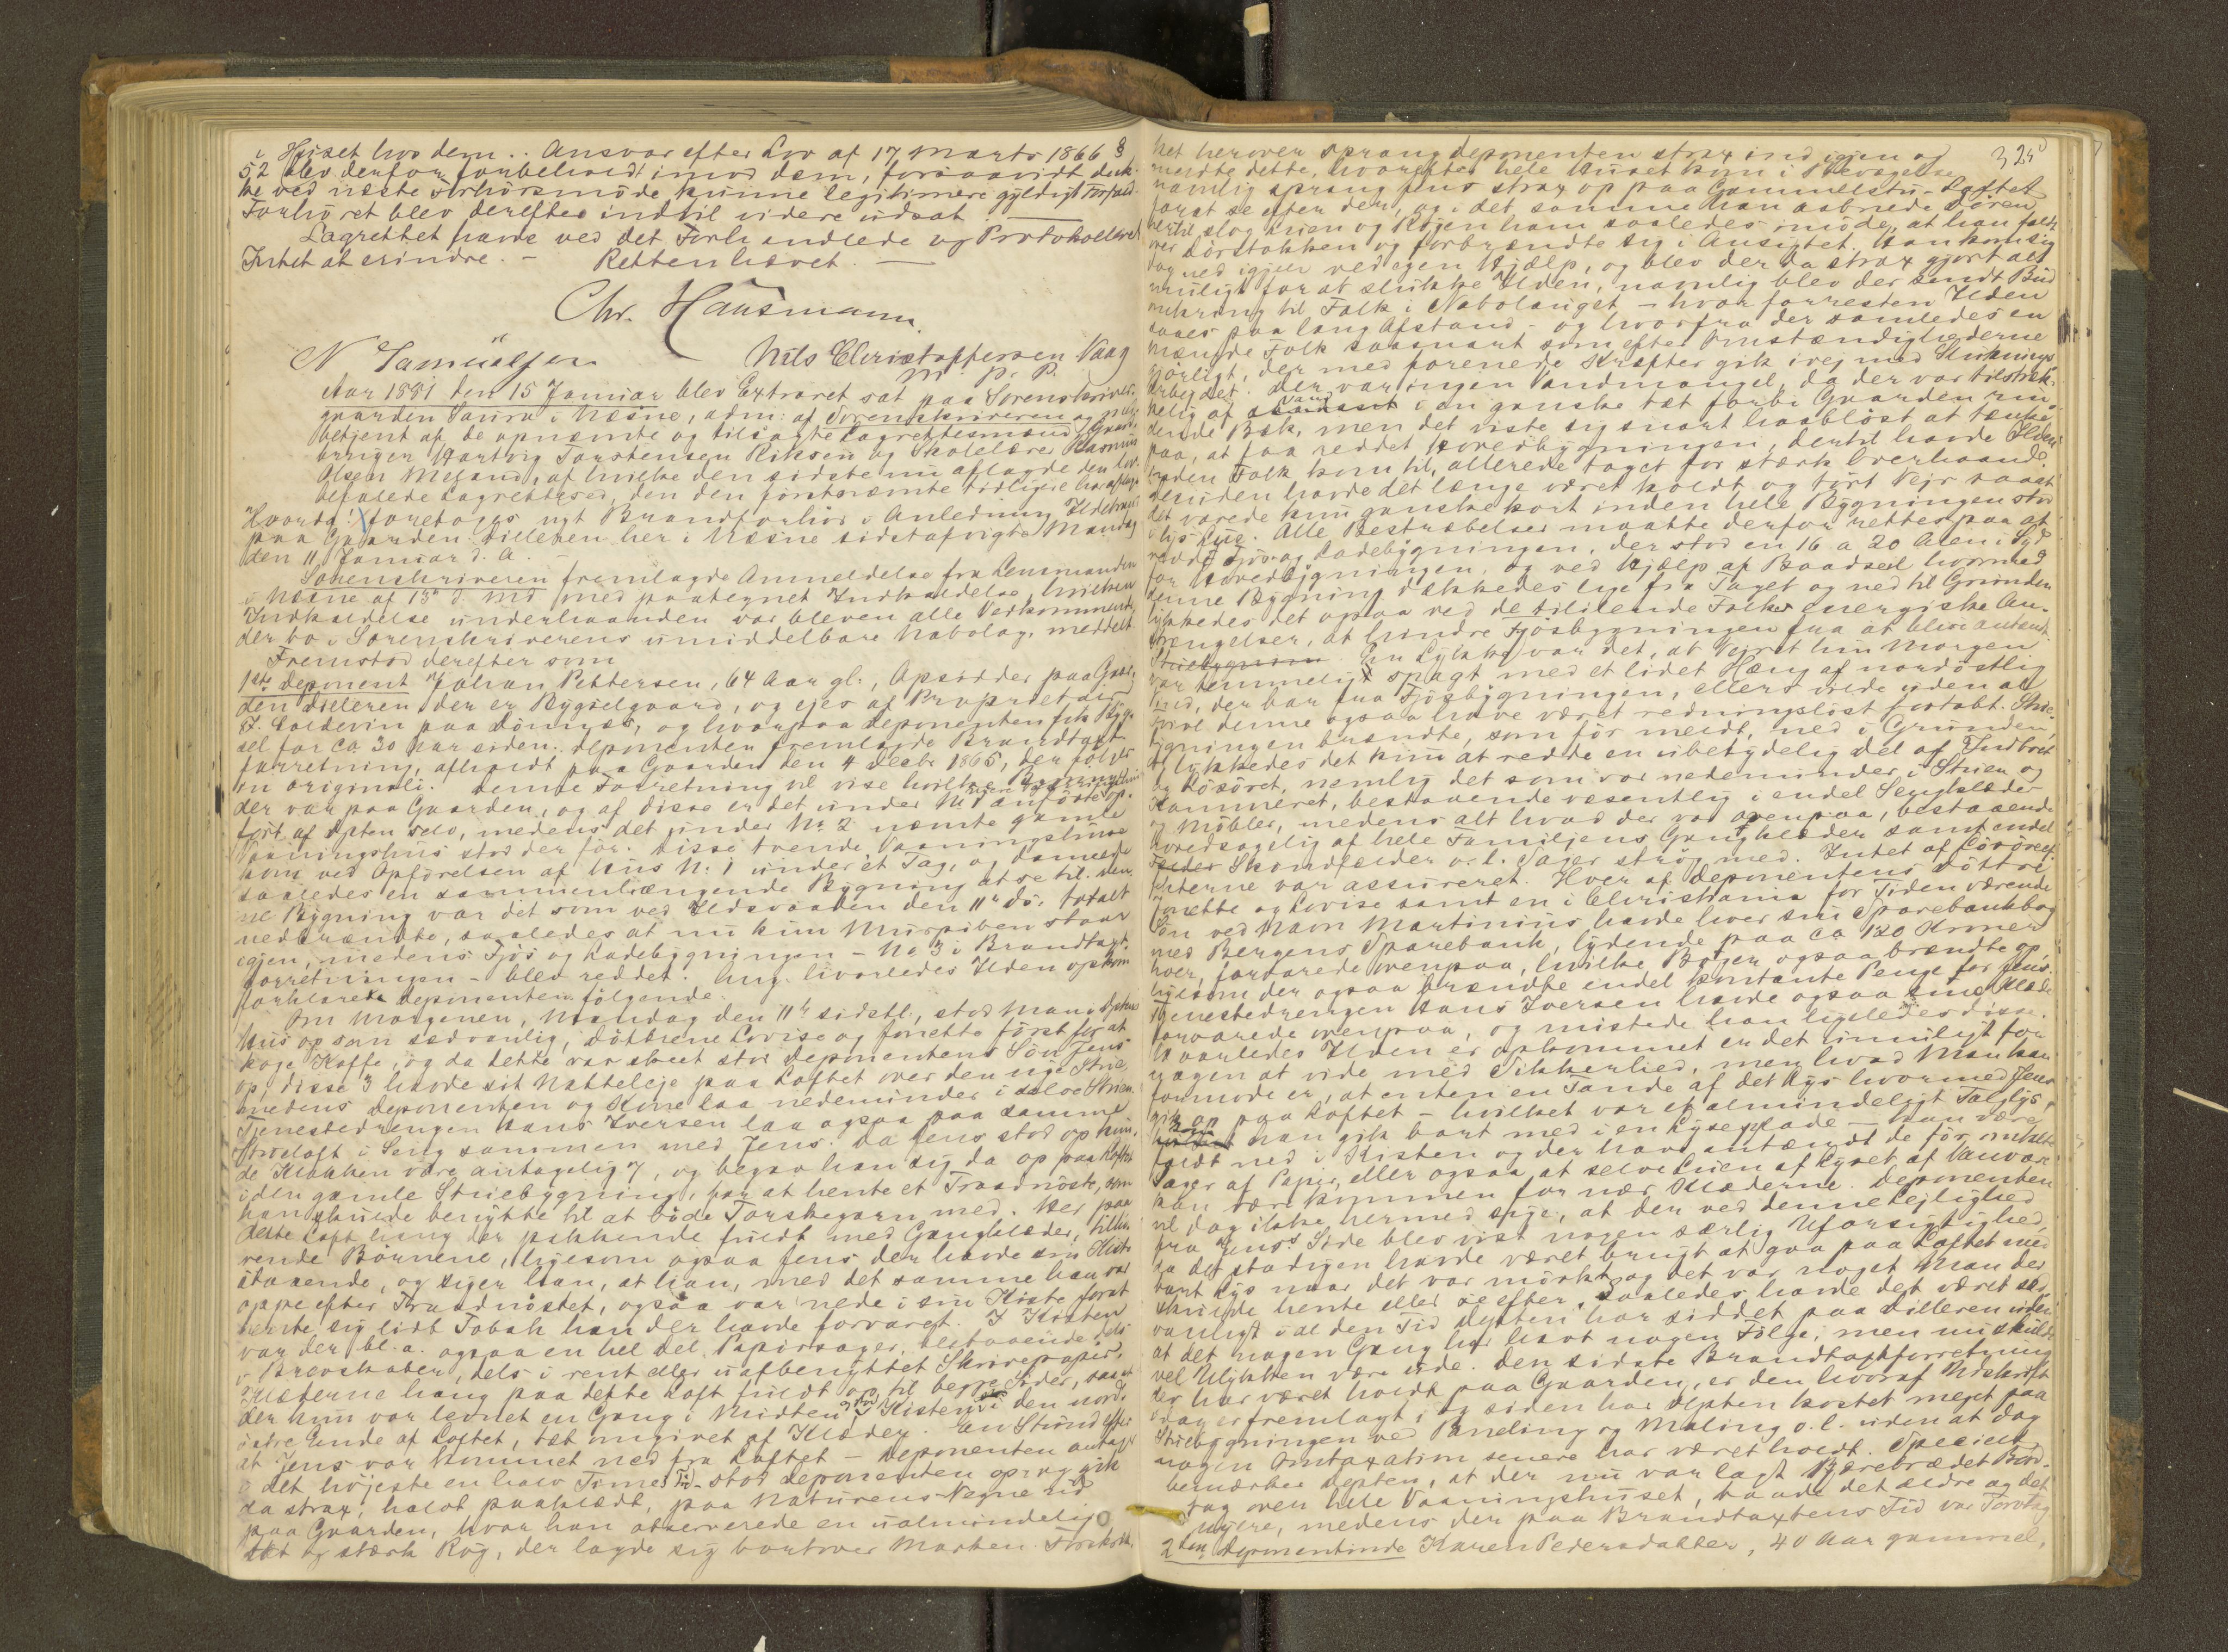 i Huset hos dem. Ansvar efter Lov af 17 Marts 1866 §
52 blev derfor forbeholdt imod dem, forsaavidt de ik-
ke ved næste Forhörsmöde kunne legitimere gyldigt Forfald.
Forhöret blev derefter indtil videre udsat.
Lagrettet havde ved det Forhandlede og Protokollerede
Intet at erindre. - Retten hævet. -
Chr. Hausmann.
N Samuelsen Nils Christoffersen Vaag
m. p. P.
Aar 1881 den 15 Januar blev Extraret sat paa Sorenskriver-
gaarden Saura i Næsne, adm: af Sorenskriveren og
betjent af de opnævnte og tilsagte Lagrettesmænd Gaard-
bruger Hartvig Torstensen Riksen og Skolelærer Rasmus
Olsen Meland, af hvilke den sidste nu aflagde den lov-
befalede Lagretteseed, den den förstnævnte tidligere har aflagt
Hvorda! foretoges ngt Brandforhör i Anledning Ildebrand
paa Gaarden Dilleren her i Næsne sidstafvigte Mandag
den 11 Januar d. A. -
Sorenskriveren fremlagde Anmeldelse fra Lensmanden
i Næsne af 13de d. Md med paategnet Indkaldelse, hvilken
Indkaldelse underhaanden var bleven alle Vedkommende,
der bo i Sorenskriverens umiddelbare Nabolag, meddelt
Fremstod derefter som
1ste Deponent Johan Pettersen, 64 Aar gl., Opsidder paa Gaar-
den Dilleren der er Bygselgaard, og ejes af Proprietær
J. Coldevin paa Dönnæs, og hvorpaa Deponenten fik Byg-
sel for ca 30 Aar siden. Deponenten fremlagde Brandtaxt-
forretning, afholdt paa Gaarden den 4 Decbr 1865, der fölger
in originali. Denne Forretning vil vise hvilke Bygninger
der var paa Gaarden, og af disse er det under No 1 anförte op-
fört af Dpten selv, medens det under No. 2 nævnte gamle
Vaaningshus stod der för. Disse tvende Vaaningshuse
kom ved Opförelsen af Hus No. 1 under et Tag, og dannede
saaledes en sammenhængende Bygning at se til. Den-
ne Bygning var det som ved Ildsvaaden den 11te ds. totalt
nedbrændte, saaledes at nu kun Murpiben staar
igjen, medens Fjös og Ladebygningen - No 3 i Brandtaxt-
forretningen - blev reddet. Ang. hvorledes Ilden opkom
forklarede Deponenten fölgende.
Om Morgenen, Mandag den 11te sidstl., stod Man i Dptens
Hus op som sædvanlig, Döttrene Lovise og Jonette först for at
koge Kaffe, og da dette var skeet stod Deponentens Sön Jens
op, disse 3 havde sit Natteleje paa Loftet over den nye Stue,
medens Deponenten og Kone laa nedenunder i selve Stuen.
Tjenestedrengen Hans Iversen laa ogsaa paa samme
Stueloft i Seng sammen med Jens. Da Jens stod op kun-
de Klokken være antagelig 7, og begav han sig da op paa Loftet
i den gamle Stuebygning, for at hente et Traadnöste, som
han skulde benytte til at böde Torskegarn med. Her paa
dette Loft hang der pakkende fuldt med Gangklæder, tilhö-
rende Börnene, ligesom ogsaa Jens der havde sin Kiste
staaende, og siger han, at han, med det samme han var
oppe efter Traadnöstet, ogsaa var nede i sin Kiste forat
hente sig lidt Tobak han der havde forvaret. I Kisten
var der bl. a. ogsaa en hel del Papirsager, bestaaende dels
i Brevskaber, dels i rent eller uafbenyttet Skrivepapir.
Klæderne hang paa dette Loft fuldt op til begge Sider, saa at
der kun var levnet en Gang i Midten, og stod Kisten ved den nord-
östre Ende af Loftet, tæt omgivet af Klæder. En Stund efter
at Jens var kommet ned fra Loftet - Deponenten antager
det höjeste en halv Times Tid - stod Deponenten op og gik
da strax, halvt paaklædt, paa Naturens Vegne ud
paa Gaarden, hvor han observerede en ualmindelig
tæt og stærk Rög, der lagde sig bortover Marken. Forskræk-
325
ket herover sprang Deponenten strax ind igjen og
meldte dette, hvorefter hele Huset kom i Bevægelse,
navnlig sprang Jens strax op paa Gammelstu-Loftet
forat se efter der, og i det samme han aabnede Dören
hertil slog Luen og Rögen ham saaledes imöde, at han faldt
over Dörstokken og forbrændte sig i Ansigtet. Han kom sig
dog ned igjen ved egen Hjælp, og blev der da strax gjort alt
muligt for at slukke Ilden, navnlig blev der sendt Bud
omkring til Folk i Nabolauget - hvor forresten Ilden
saaes paa lang Afstand - og hvorfra der samledes en
Mængde Folk saasnart som efter Omstændighederne
gjörligt, der med forenede Kræfter gik ivej med Sluknings-
arbejdet. Der var ingen Vandmangel, da der var tilstræk-
kelig af Vand i en ganske tæt forbi Gaarden rin-
dende Bæk, men det viste sig snart haablöst at tænke
paa, at faa reddet Hovedbygningen, dertil havde Ilden
inden Folk kom til, allerede taget for stærk Overhaand.
Desuden havde det længe været koldt og tört Vejr saaat
det varede kun ganske kort inden hele Bygningen stod
i lys Lue. Alle Bestræbelser maatte derfor rettes paa at
redde Fjös og Ladebygningen, der stod en 16 a 20 Alen i Syd
for Hovedbygningen, og ved Hjælp af Baadseil hvormed
denne Bygning dækkedes lige fra Taget og ned til Grunden
lykkedes det ogsaa ved de tililende Folkes energiske An-
strengelser, at hindre Fjösbygningen fra at blive antændt.
En Lykke var det, at Vejret hin Morgen
var temmeligt spagt med et lidet Hæng af nordöstlig
Vind, der bar fra Fjösbygningen, ellers vilde uden al
Tvivl denne ogsaa have været redningslöst fortabt. Stue-
bygningen brændte, som för meldt, ned i Grunden,
og lykkedes det kun at redde en ubetydelig Del af Indbo
og Lösöret, nemlig det som var nedenunder i Stuen og
Kammeret, bestaaende væsentlig i endel Sengklæder
og Möbler, medens alt hvad der var ovenpaa, bestaaende
hovedsagelig af hele Familjens Gangklæder samt endel
Skindfælder o. l. Sager ströj med. Intet af Lösöreef-
fekterne var assureret. Hver af Deponentens Döttre
Jonette og Lovise samt en i Christiania for Tiden værende
Sön ved Navn Martinius havde hver sin Sparebankbog
med Bergens Sparebank, lydende paa ca 120 Kroner
hver, forvarede ovenpaa, hvilke Böger ogsaa brændte op,
ligesom der ogsaa brændte endel kontante Penge for Jens.
Tjenestedrengen Hans Iversen havde ogsaa sine Klæder
forvarede ovenpaa, og mistede han ligeledes disse.
Hvorledes Ilden er opkommet er det umuligt for
nogen at vide med Sikkerhed, men hvad Man kan
formode er, at enten en Tande af det Lys hvormed Jens
gik op paa Loftet - hvilket var et almindeligt Talglys,
som han gik bart med i en Lyseplade - kan være
faldt ned i Kisten og der have antændt de för omhldte
Sager af Papir, eller ogsaa at selve Luen af Lyset af Vanvare
kan være kommen for nær Klæderne. Deponenten
vil dog ikke hermed sige, at der ved denne Lejlighed
fra Jens's Side blev vist nogen særlig Uforsigtighed,
da det stadigen havde været brugt at gaa paa Loftet med
bart Lys naar det var mörkt og det var noget Man der
skulde hente eller se efter. Saaledes havde det været sæd-
vanligt i al den Tid Dpten har siddet paa Dilleren uden
at det nogen Gang har havt nogen Fölge, men nu skulde
vel Ulykken være ude. Den sidste Brandtaxtforretning
der har været holdt paa Gaarden, er den hvoraf Udskrift
idag er fremlagt i og siden har Dpten kostet meget paa
Stuebygningen ved Paneling og Maling o. l. uden at dog
nogen Omtaxation senere har været holdt. Specielt
bemærker Dpten, at der nu var lagt Bord-
tag over hele Vaaningshuset, baade det ældre og det
nyere, medens der paa Brandtaxtens Tid var Torvtag
2den Deponentinde Karen Pedersdatter, 40 Aar gammel,